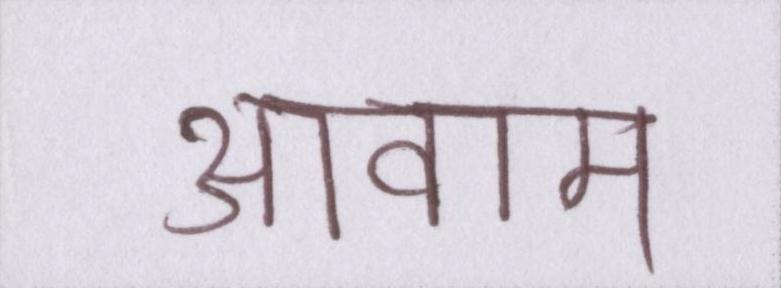 आवाम